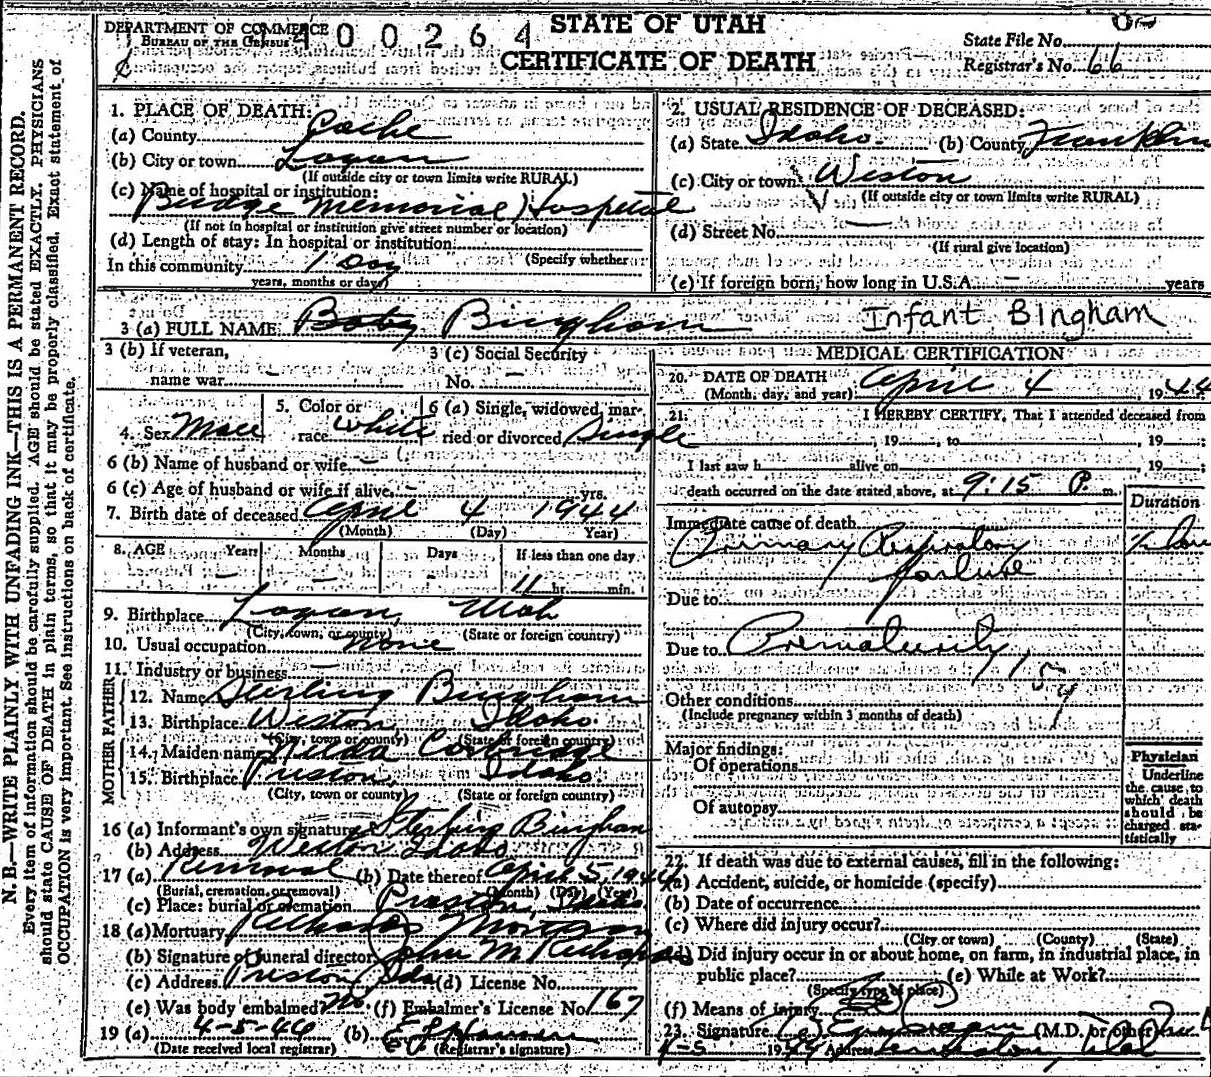 DEPARTMENT OF COMMERCE
BUREAU OF THE CENSUS
400264
STATE OF UTAH
CERTIFICATE OF DEATH
State File No.
Registrar's No. 66
N. B.—WRITE PLAINLY, WITH UNFADING INK—THIS IS A PERMANENT RECORD.
Every item of information should be carefully supplied. AGE should be stated EXACTLY. PHYSICIANS
should state CAUSE OF DEATH in plain terms, so that it may be properly classified. Exact statement of
OCCUPATION is very important. See instructions on back of certificate.
1. PLACE OF DEATH:
(a) County Cache
(b) City or town Logan
(If outside city or town limits write RURAL)
(c) Name of hospital or institution:
Budge Memorial Hospital
(If not in hospital or institution give street number or location)
(d) Length of stay: In hospital or institution
(Specify whether
In this community 1 Day
years, months or days)
2. USUAL RESIDENCE OF DECEASED:
(a) State Idaho (b) County Franklin
(c) City or town Weston
(If outside city or town limits write RURAL)
(d) Street No. —
(If rural give location)
(e) If foreign born, how long in U.S.A. — years
3 (a) FULL NAME Baby Bingham Infant Bingham
3 (b) If veteran,
name war —
3 (c) Social Security
No. —
4. Sex Male
5. Color or
race White
6 (a) Single, widowed, mar-
ried or divorced Single
6 (b) Name of husband or wife —
6 (c) Age of husband or wife if alive — yrs.
7. Birth date of deceased April 4 1944
(Month) (Day) Year)
8. AGE Years Months Days If less than one day
— — 11 hr. min.
9. Birthplace Logan, Utah
(City, town, or county) (State or foreign country)
10. Usual occupation none
11. Industry or business —
FATHER
12. Name Sterling Bingham
13. Birthplace Weston Idaho
(City, town or county) (State or foreign country)
MOTHER
14. Maiden name
15. Birthplace Preston, Idaho
(City, town or county) (State or foreign country)
16 (a) Informant's own signature Sterling Bingham
(b) Address Weston Idaho
17 (a) Removal (b) Date thereof April 5, 1944
(Burial, cremation, or removal) (Month) (Day) (Year)
(c) Place: burial or cremation Preston, Idaho
18 (a) Mortuary
(b) Signature of funeral director John M
(c) Address Preston Ida (d) License No.
(e) Was body embalmed? No (f) Embalmer's License No. 167
19 (a) 4-5-44 (b)
(Date received local registrar) (Registrar's signature)
MEDICAL CERTIFICATION
20. DATE OF DEATH April 4, 1944
(Month, day, and year)
21. I HEREBY CERTIFY, That I attended deceased from
, 19 , to , 19 ;
I last saw h alive on , 19 ;
death occurred on the date stated above, at 9:15 P. m.
Duration
Immediate cause of death
Primary Respiratory
failure
Due to
Due to Prematurity
159
Other conditions
(Include pregnancy within 3 months of death)
Major findings:
Of operations
Of autopsy
Physician
Underline
the cause to
which death
should be
charged sta-
tistically
22. If death was due to external causes, fill in the following:
(a) Accident, suicide, or homicide (specify)
(b) Date of occurrence
(c) Where did injury occur?
(City or town) (County) (State)
(d) Did injury occur in or about home, on farm, in industrial place, in
public place? (e) While at Work?
(Specify type of place)
(f) Means of injury
23. Signature (M.D. or other)
4-5 1944 Address